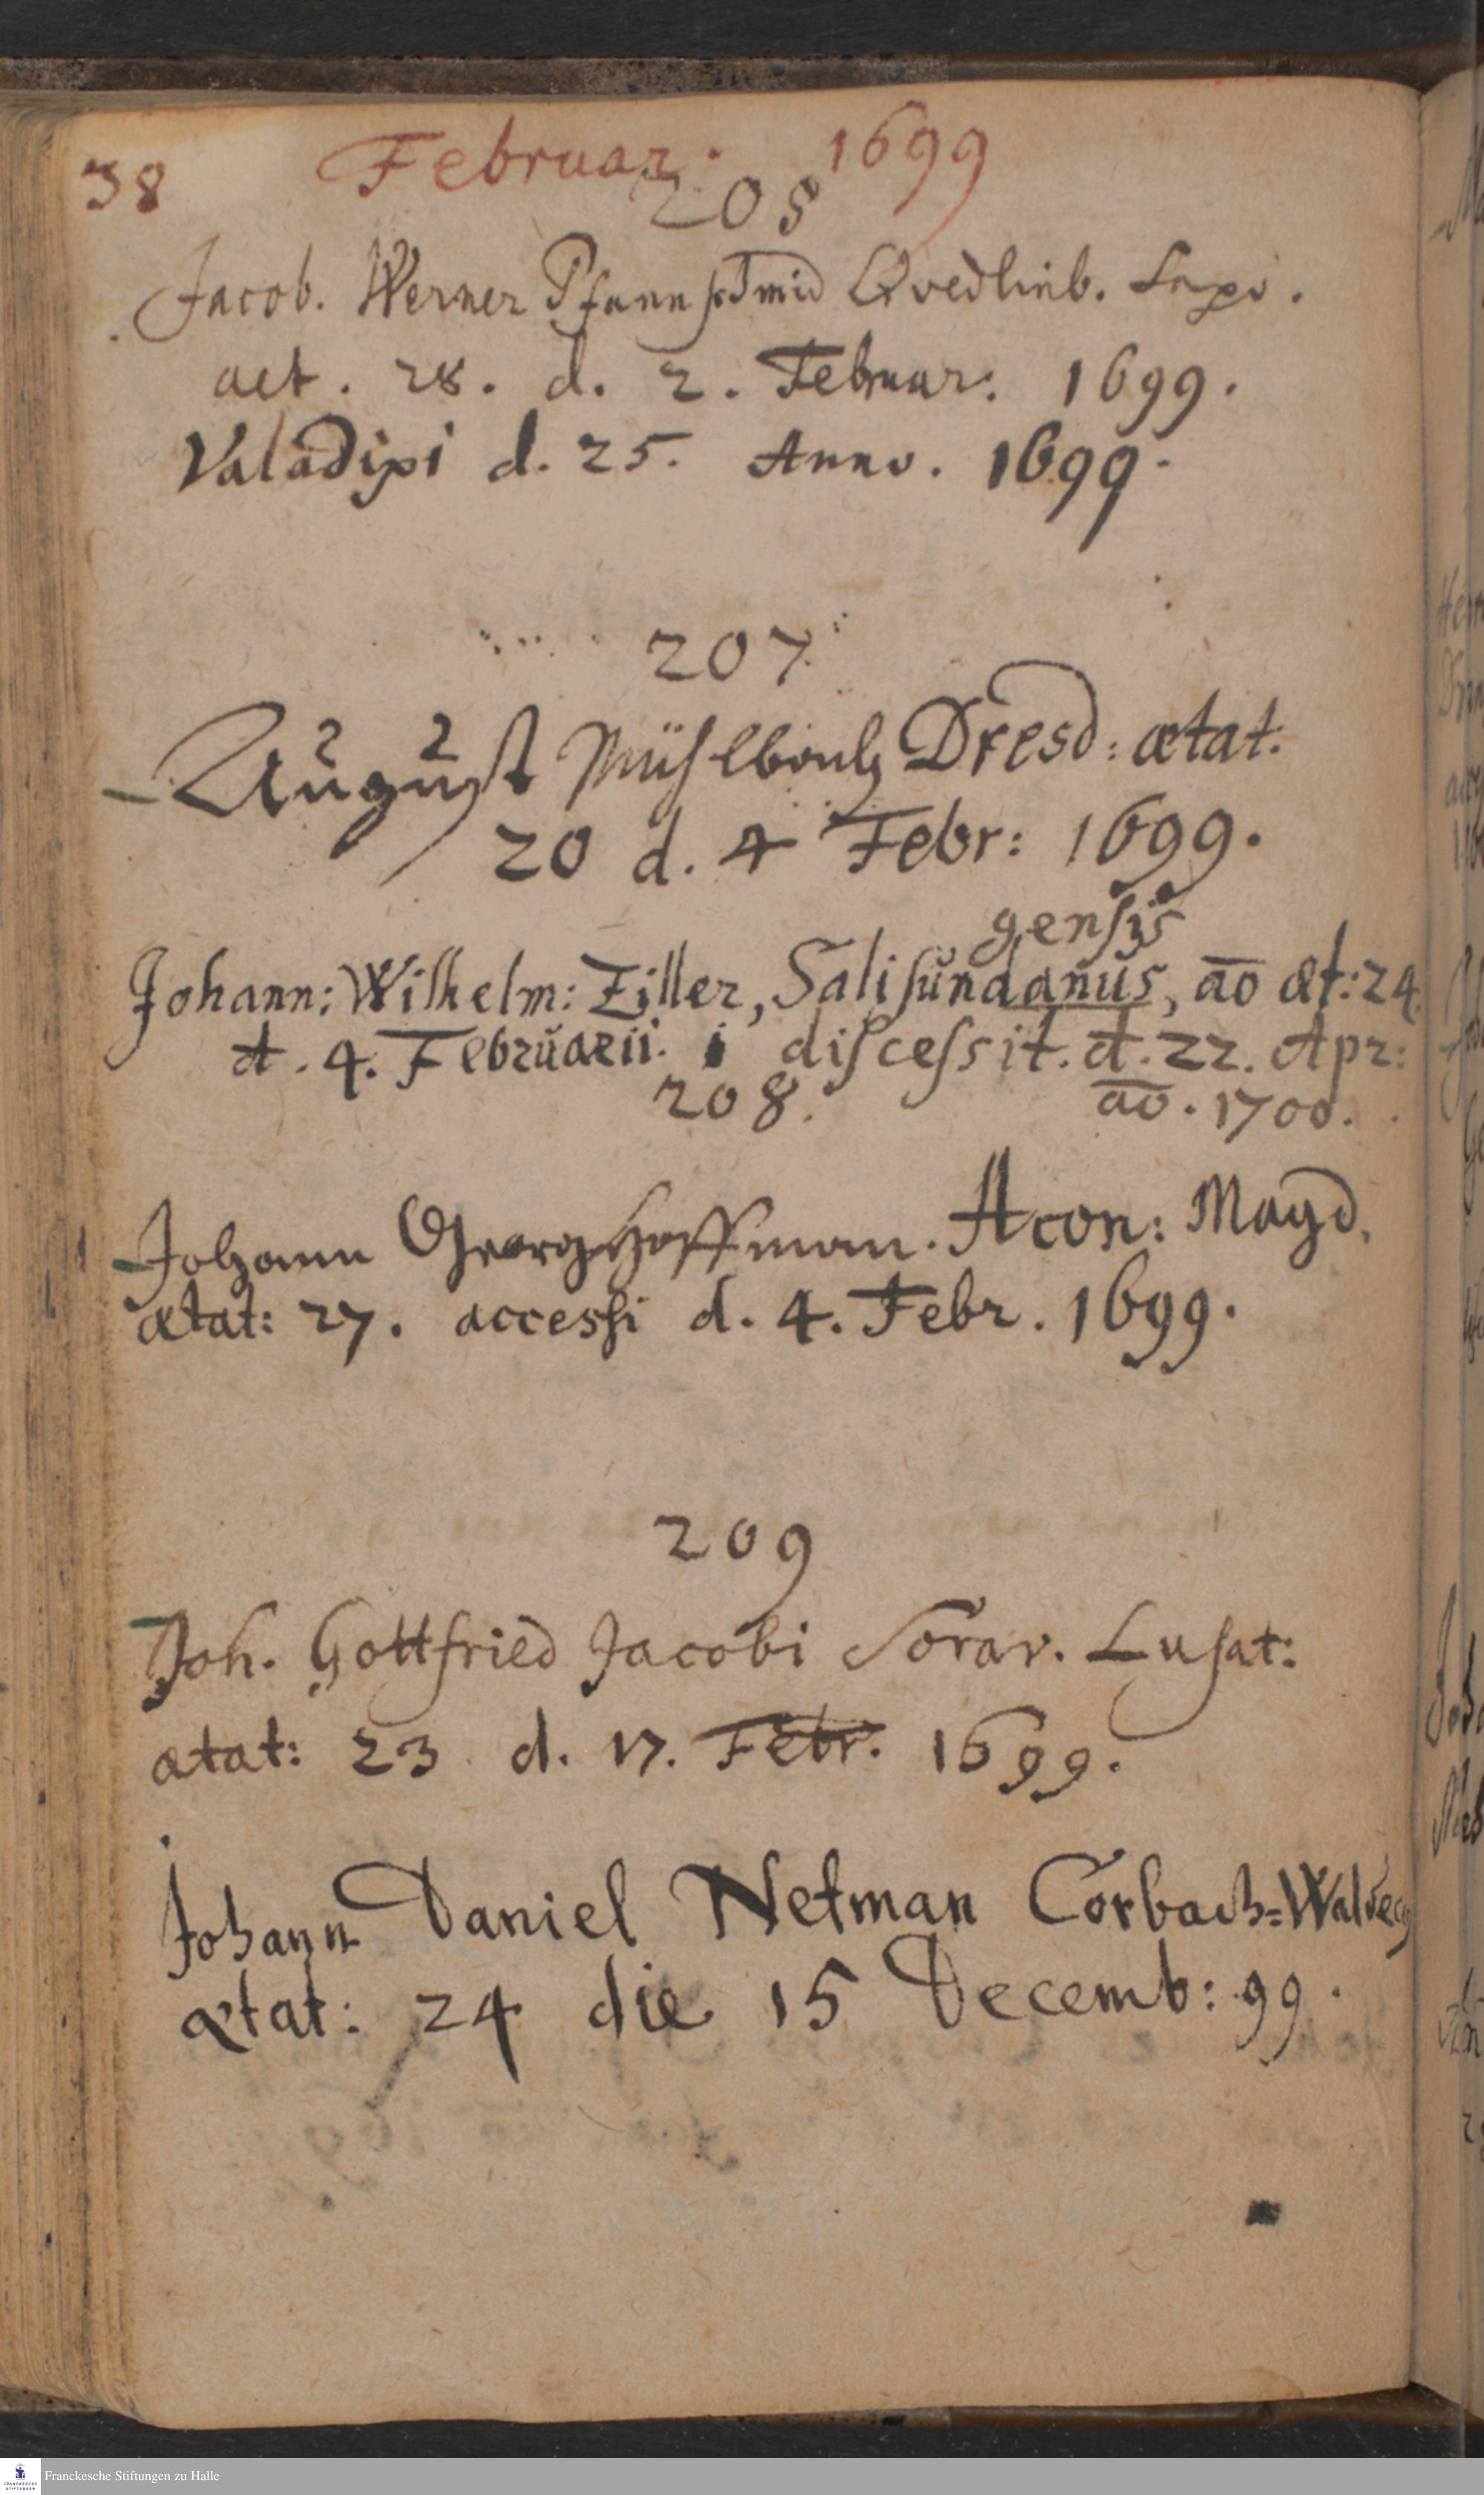 38 Februar. 1699
205
Jacob. Werner Pfannschmid Qvedlinb. Saxo.
aet. 28. d. 2. Februar: 1699.
Valadixi d. 25. Anno. 1699.
207
August Dresd: ætat.
20 d. 4 Febr: 1699.
gensis
Johann: Wilhelm: Ziller, Salisundanus, ao æt: 24.
d. 4. Februarii. discessit. d. 22. Apr:
208. ao. 1700.
Johann Georg Hoffman. Acon: Magd.
ætat: 27. accessi d. 4. Febr. 1699.
209
Joh. Gottfried Jacobi Sorav. Lusat:
ætat: 23 d. 17. Febr. 1699.
Johann Daniel Netman Corbach=Waldecg
ætat: 24 die 15 Decemb: 99.
Franckesche Stiftungen zu Halle